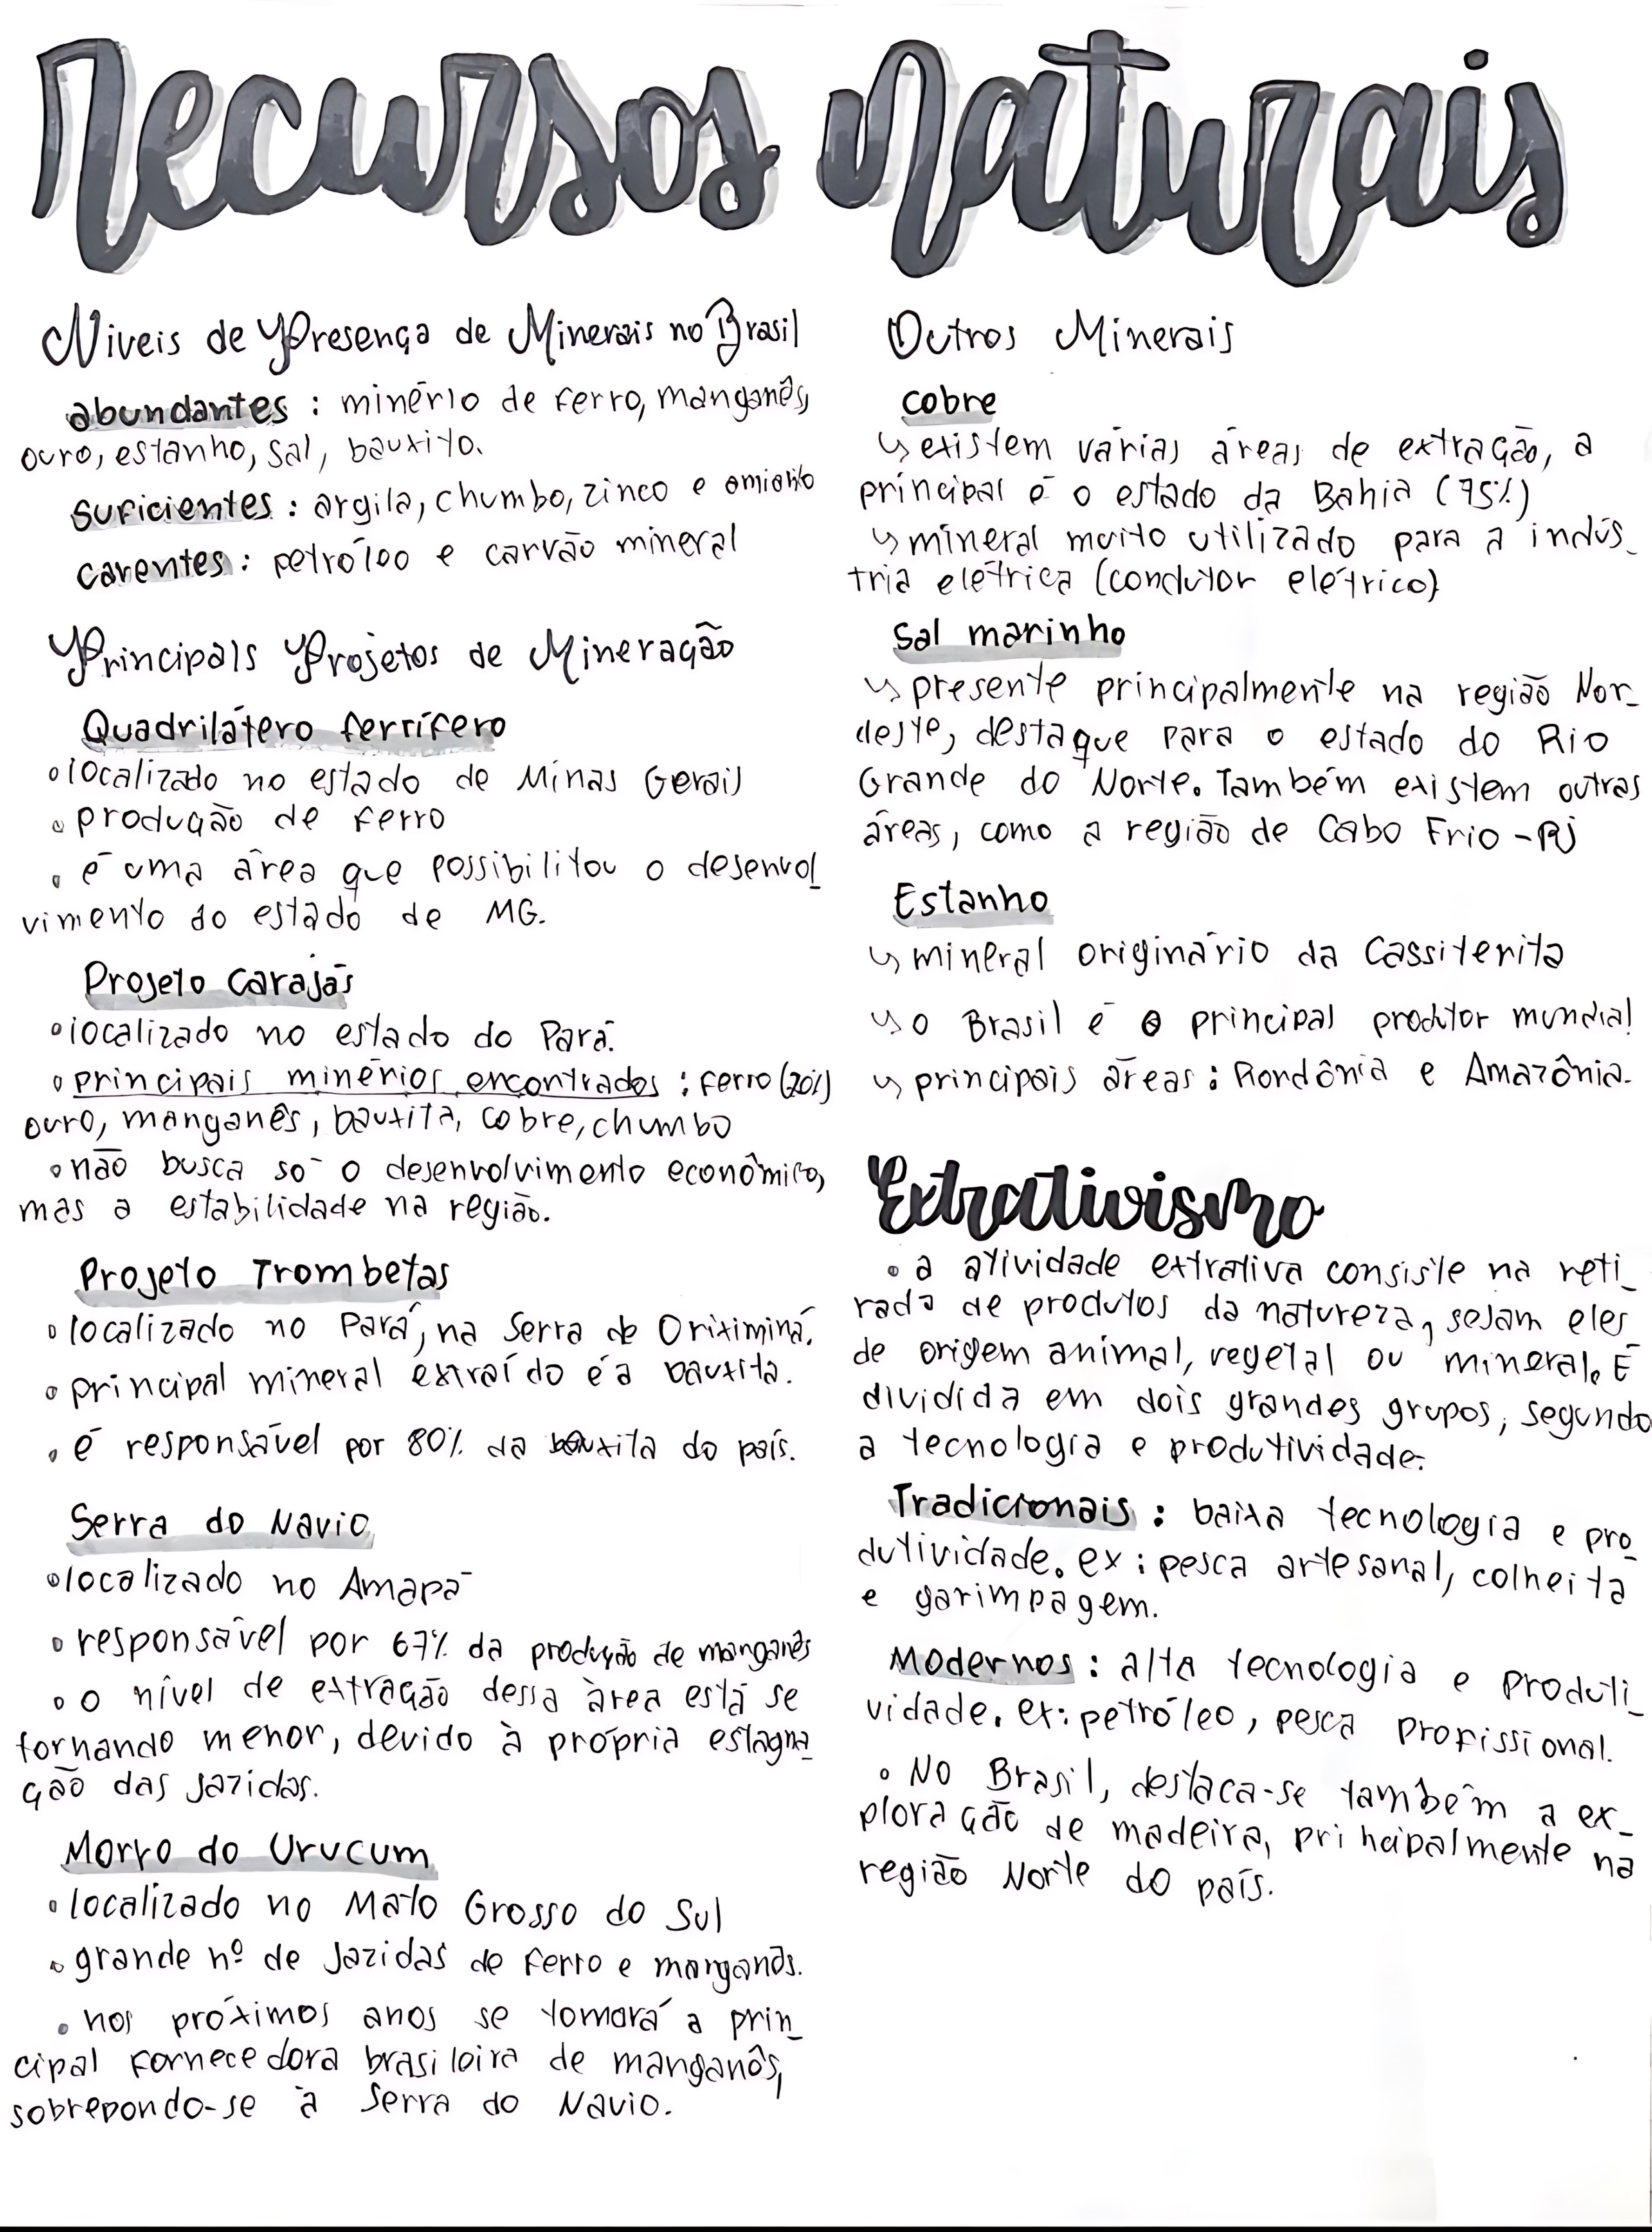 recursos naturais
Níveis de Presença de Minerais no Brasil
abundantes : minério de ferro, manganês,
ouro, estanho, sal, bauxita.
suficientes : argila, chumbo, zinco e amianto
carentes : petróleo e carvão mineral
Principais Projetos de Mineração
Quadrilátero ferrífero
• localizado no estado de Minas Gerais
• produção de ferro
• é uma área que possibilitou o desenvol_
vimento do estado de MG.
Projeto Carajás
• localizado no estado do Pará.
• principais minérios encontrados : ferro
ouro, manganês, bauxita, cobre, chumbo
• não busca só o desenvolvimento econômico,
mas a estabilidade na região.
Projeto Trombetas
• localizado no Pará, na Serra de Oriximiná.
• principal mineral extraído é a bauxita.
• é responsável por 80% da bauxita do país.
Serra do Navio
• localizado no Amapá
• responsável por 67% da produção de manganês
• o nível de extração dessa àrea está se
tornando menor, devido à própria estagna_
ção das jazidas.
Morro do Urucum
• localizado no Mato Grosso do Sul
• grande nº de jazidas de ferro e manganês.
• nos próximos anos se tornará a prin_
cipal fornecedora brasileira de manganês,
sobrepondo-se à Serra do Navio.
Outros Minerais
cobre
↳ existem várias áreas de extração, a
principal é o estado da Bahia (75%)
↳ mineral muito utilizado para a indús_
tria elétrica (condutor elétrico)
Sal marinho
↳ presente principalmente na região Nor_
deste, destaque para o estado do Rio
Grande do Norte. Também existem outras
áreas, como a região de Cabo Frio - RJ
Estanho
↳ mineral originário da Cassiterita
↳ o Brasil é o principal produtor mundial
↳ principais áreas : Rondônia e Amazônia.
Extrativismo
• a atividade extrativa consiste na reti_
rada de produtos da natureza, sejam eles
de origem animal, vegetal ou mineral. É
dividida em dois grandes grupos, segundo
a tecnologia e produtividade.
Tradicionais : baixa tecnologia e pro_
dutividade. ex : pesca artesanal, colheita
e garimpagem.
Modernos : alta tecnologia e produti_
vidade. ex: petróleo, pesca profissional.
• No Brasil, destaca-se também a ex_
ploração de madeira, principalmente na
região Norte do país.